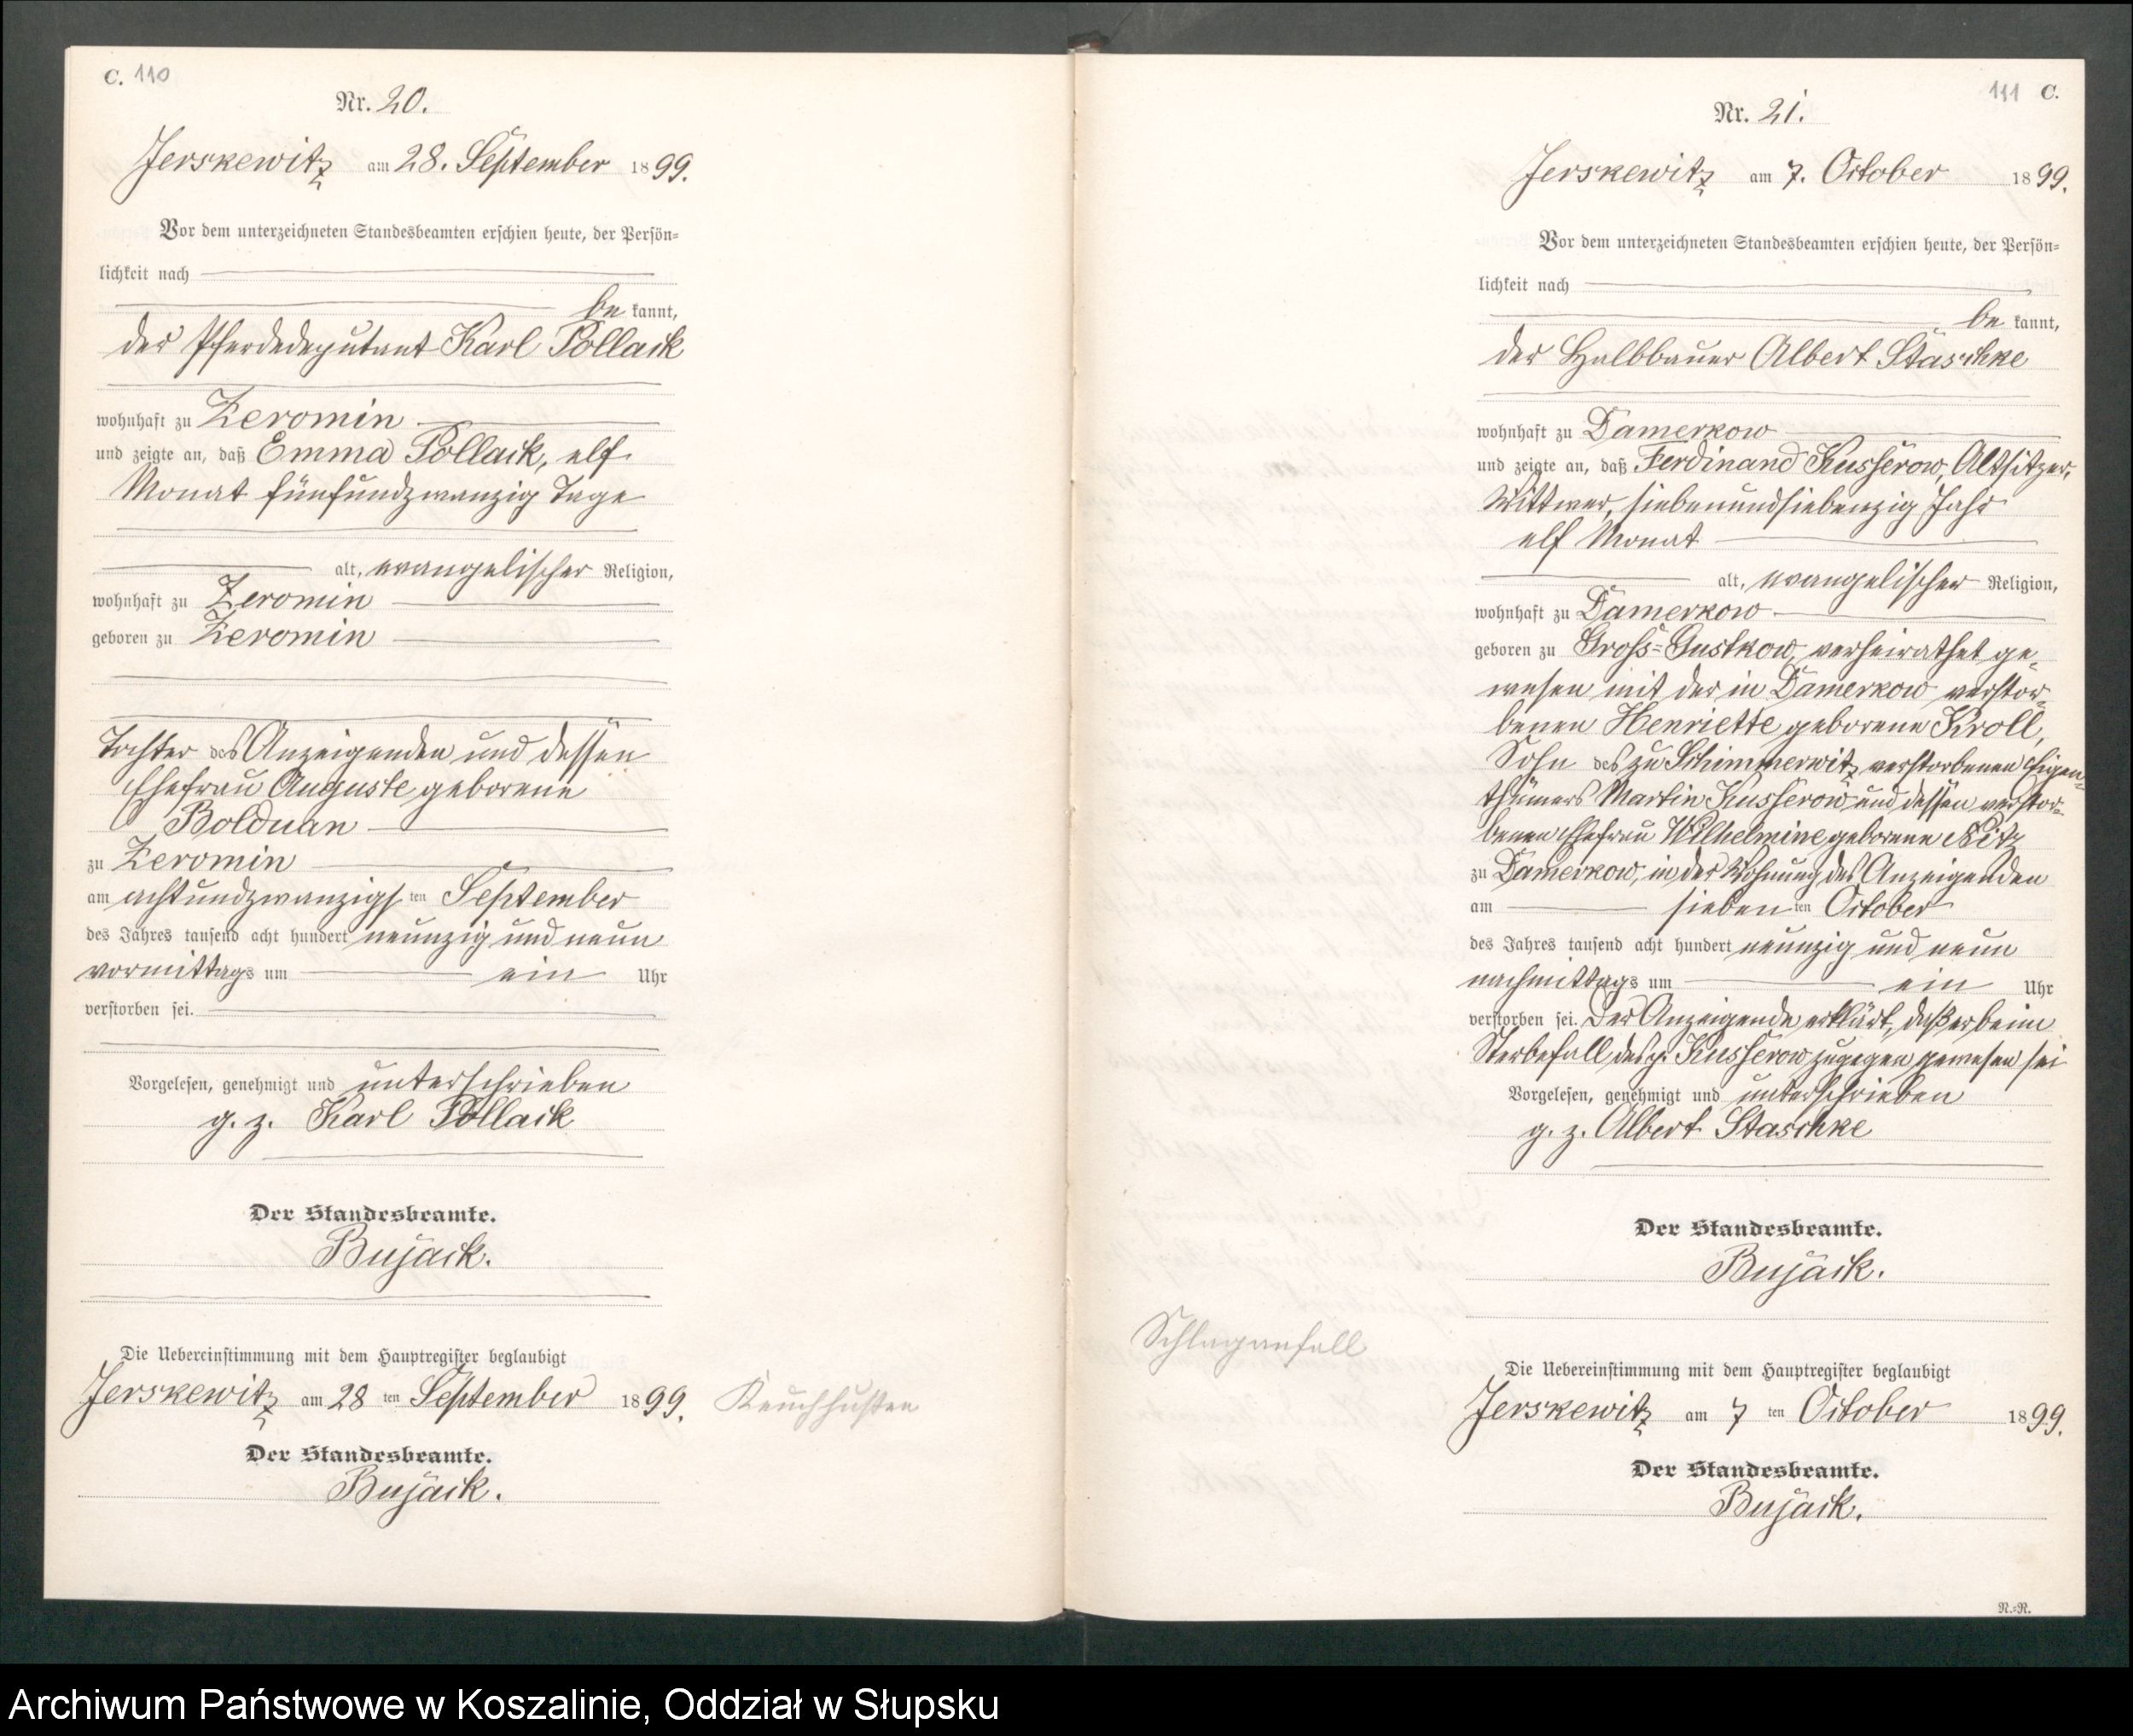 C. 110
Nr. 20.
Jerskewitz am 28. September 1899.
Vor dem unterzeichneten Standesbeamten erschien heute, der Persön=
lichkeit nach
be kannt,
der Pferdedeputant Karl Pollack
wohnhaft zu Zeromin
und zeigte an, daß Emma Pollack, elf
Monat fünfundzwanzig Tage
alt, evangelischer Religion,
wohnhaft zu Zeromin
geboren zu Zeromin
Tochter des Anzeigenden und dessen
Ehefrau Auguste geborene
Bolduan
zu Zeromin
am achtundzwanzigsten September
des Jahres tausend acht hundert neunzig und neun
vormittags um ein Uhr
verstorben sei.
Vorgelesen, genehmigt und unterschrieben
g. z. Karl Pollack
Der Standesbeamte.
Bujack.
Die Uebereinstimmung mit dem Hauptregister beglaubigt
Jerskewitz am 28 ten September 1899.
Keuchhusten
Der Standesbeamte.
Bujack.
111 C.
Nr. 21.
Jerskewitz am 7. October 1899.
Vor dem unterzeichneten Standesbeamten erschien heute, der Persön=
lichkeit nach
be kannt,
der Halbbauer Albert Staschke
wohnhaft zu Damerkow
und zeigte an, daß Ferdinand Kusserow, Altsitzer,
Wittwer, siebenundsiebenzig Jahr
elf Monat
alt, evangelischer Religion,
wohnhaft zu Damerkow
geboren zu Gross=Gustkow, verheirathet ge=
wesen mit der in Damerkow verstor=
benen Henriette geborene Kroll,
Sohn des zu Schimmerwitz verstorbenen Eigen=
thümers Martin Kusserow und dessen verstor=
benen Ehefrau Wilhelmine geborene Nitz
zu Damerkow, in der Wohnung des Anzeigenden
am siebenten October
des Jahres tausend acht hundert neunzig und neun
nachmittags um ein Uhr
verstorben sei. Der Anzeigende erklärt, daß er beim
Sterbefall des p. Kusserow zugegen gewesen sei
Vorgelesen, genehmigt und unterschrieben
g. z. Albert Staschke
Der Standesbeamte.
Bujack.
Schlaganfall
Die Uebereinstimmung mit dem Hauptregister beglaubigt
Jerskewitz am 7 ten October 1899.
Der Standesbeamte.
Bujack.
R.=R.
Archiwum Państwowe w Koszalinie, Oddział w Słupsku